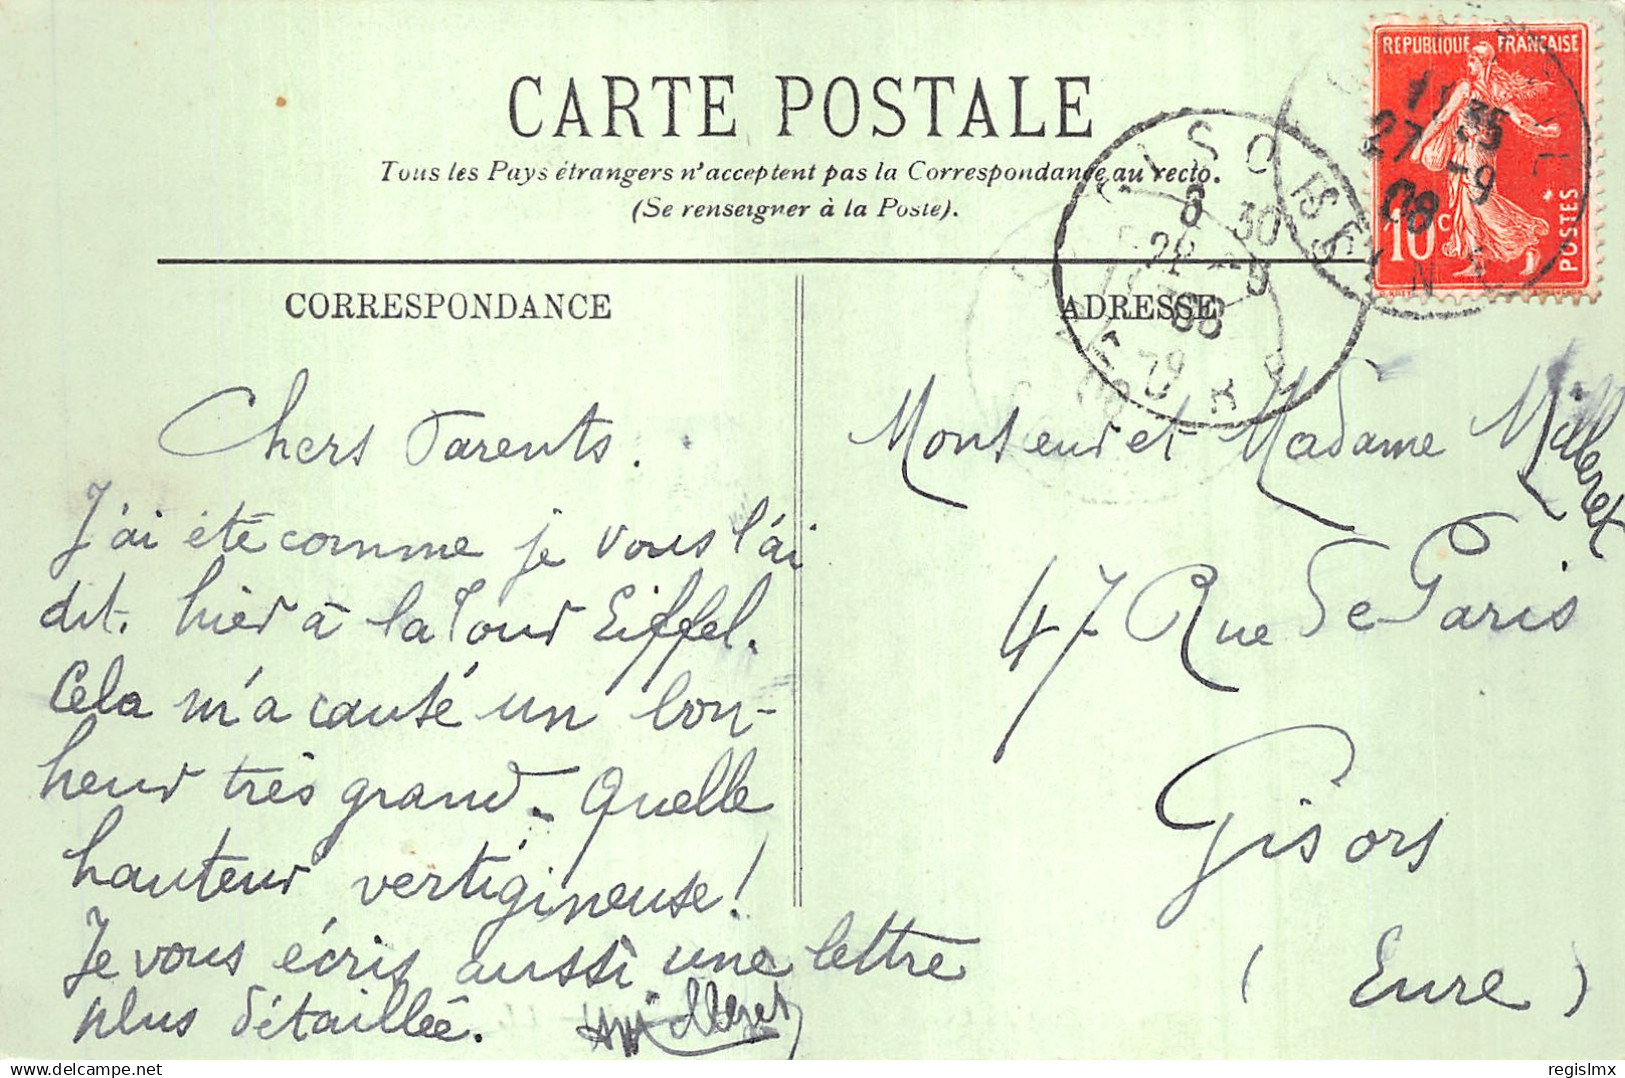 CARTE POSTALE
Tous les Pays étrangers n'acceptent pas la Correspondance au recto.
(Se renseigner à la Poste).
REPUBLIQUE FRANÇAISE
10c
POSTES
35
27 -9
08
8 30
-9
08
CORRESPONDANCE
ADRESSE
EURE
Chers Parents.
J'ai été comme je vous l'ai
dit. hier à la Tour Eiffel.
Cela m'a causé un bon-
heur très grand. Quelle
hauteur vertigineuse!
Je vous écris aussi une lettre
plus détaillée.
Milleret
Monsieur et Madame Milleret
47 Rue de Paris
Gisors
(Eure)
regislmx